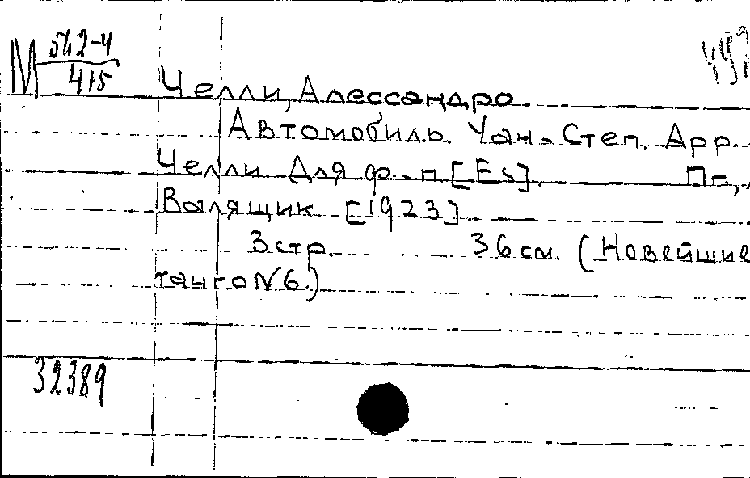 М 542-4
415
Челли, Алессандро.
Автомобиль. Уан-Степ. Арр.
Челли. Для ф.-п. [Es]. Пг.,
Валящик [1923].
3 стр. 36 см. (Новейшие
танго N6.)
32389